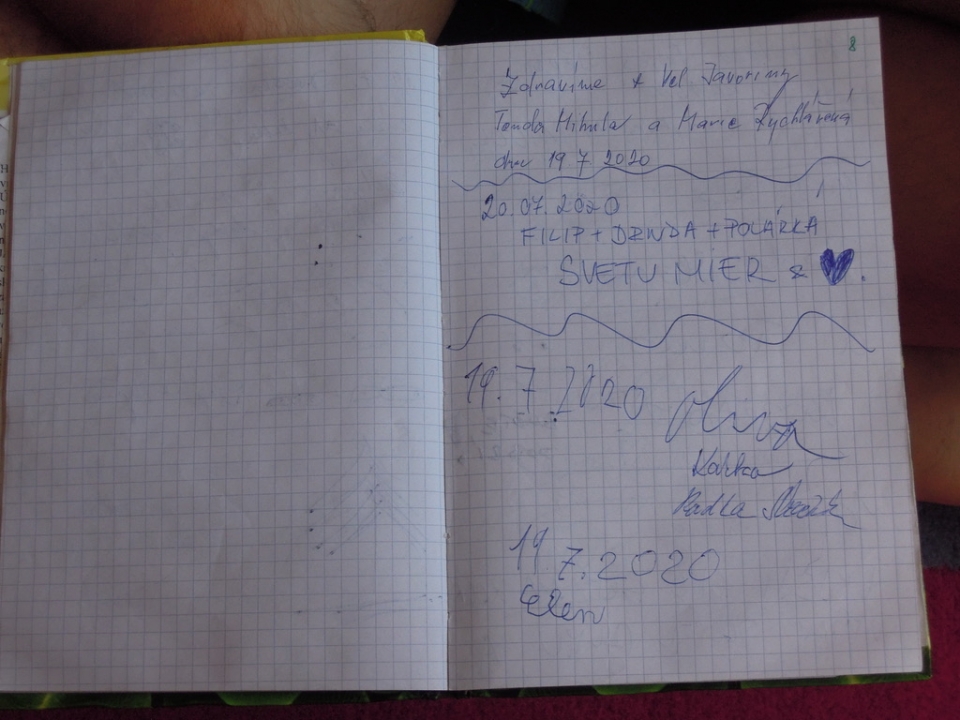 8
Zdravíme z Vel Javoriny
Tonda Mikula a Marie
dne 19 7 2020
20.07.2020
FILIP + DZINDA + POLÁRKA
SVETU MIER & ♥.
19.7 2020
Oliver
Katka
Radka
19 7.2020
Elen